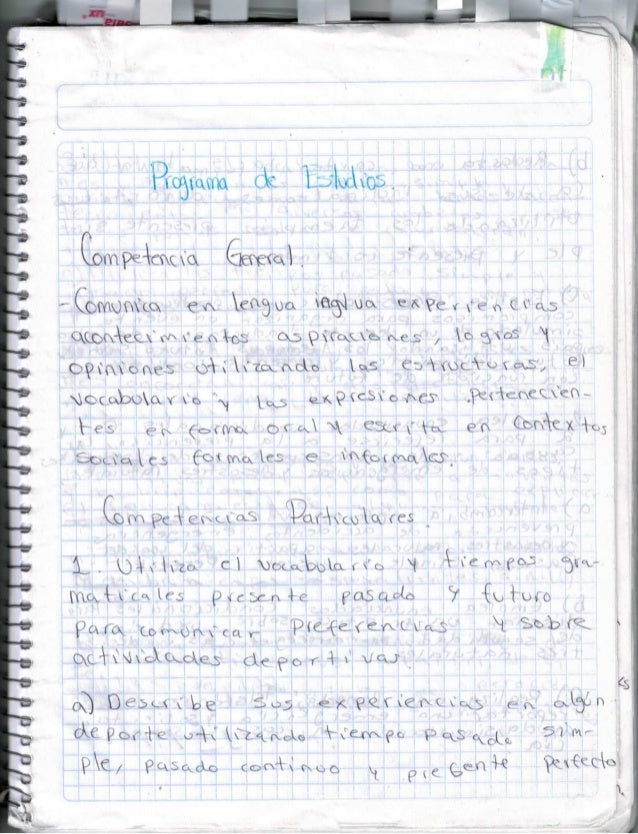 Programa de Estudios.
Competencia General.
- Comunica en lengua inglua experiencias
acontecimientos aspiraciones, logros y
opiniones utilizando las estructuras, el
vocabulario y las expresiones pertenecien-
tes en forma oral y escrita en contextos
sociales formales e informales.
Competencias Particulares.
1. Utiliza el vocabulario y tiempos gra-
maticales presente pasado y futuro
para comunicar preferencias y sobre
actividades deportivas.
a) Describe sus experiencias en algún
deporte utilizando tiempo pasado sim-
ple, pasado continuo y presente perfecto